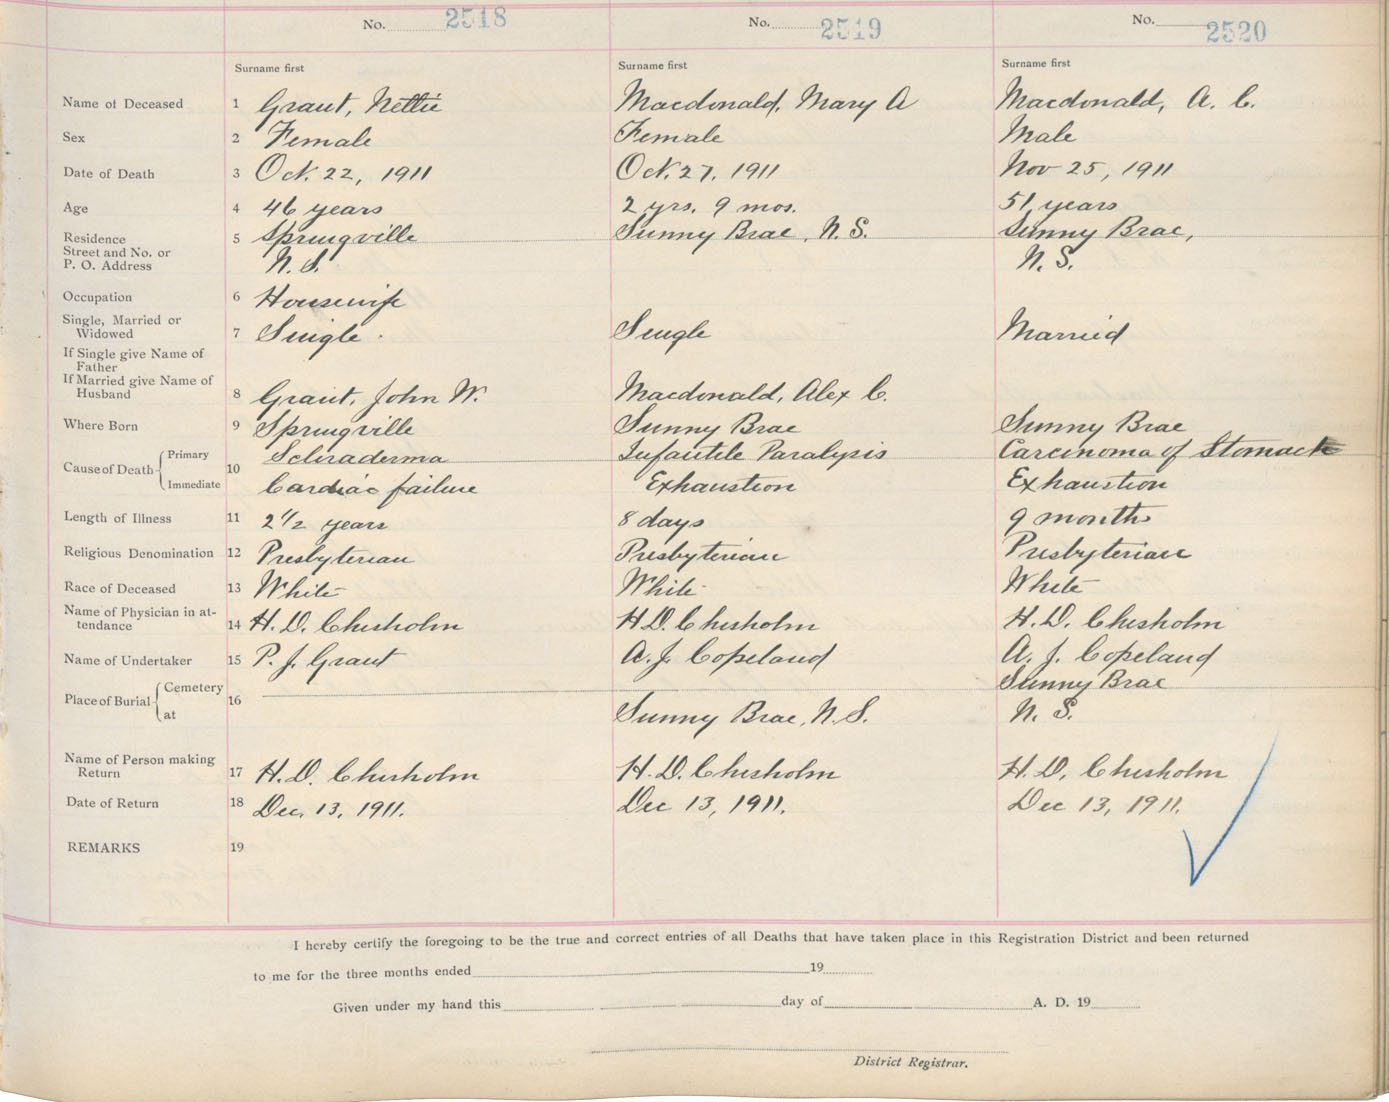 No. 2518 No. 2519 No. 2520
Surname first Surname first Surname first
Name of Deceased 1 Grant, Nettie Macdonald, Mary A Macdonald, A. C.
Sex 2 Female Female Male
Date of Death 3 Oct. 22, 1911 Oct. 27, 1911 Nov 25, 1911
Age 4 46 years 2 yrs. 9 mos. 51 years
Residence 5 Springville Sunny Brae, N. S. Sunny Brae,
Street and No. or
P. O. Address N. S. N. S.
Occupation 6 Housewife
Single, Married or
Widowed 7 Single. Single Married
If Single give Name of
Father
If Married give Name of
Husband 8 Grant, John W. Macdonald, Alex C.
Where Born 9 Springville Sunny Brae Sunny Brae
Cause of Death Primary 10 Scliraderma Infantile Paralysis Carcinoma of Stomach
Immediate Cardiac failure Exhaustion Exhaustion
Length of Illness 11 2 1/2 years 8 days 9 months
Religious Denomination 12 Presbyterian Presbyterian Presbyterian
Race of Deceased 13 White White White
Name of Physician in at-
tendance 14 H. D. Chisholm H D. Chisholm H. D. Chisholm
Name of Undertaker 15 P. J. Grant A. J. Copeland A. J. Copeland
Place of Burial Cemetery 16 Sunny Brae
at Sunny Brae, N. S. N. S.
Name of Person making
Return 17 H. D. Chisholm H. D. Chisholm H. D. Chisholm
Date of Return 18 Dec. 13, 1911. Dec 13, 1911. Dec 13, 1911.
REMARKS 19
I hereby certify the foregoing to be the true and correct entries of all Deaths that have taken place in this Registration District and been returned
to me for the three months ended 19
Given under my hand this day of A. D. 19
District Registrar.